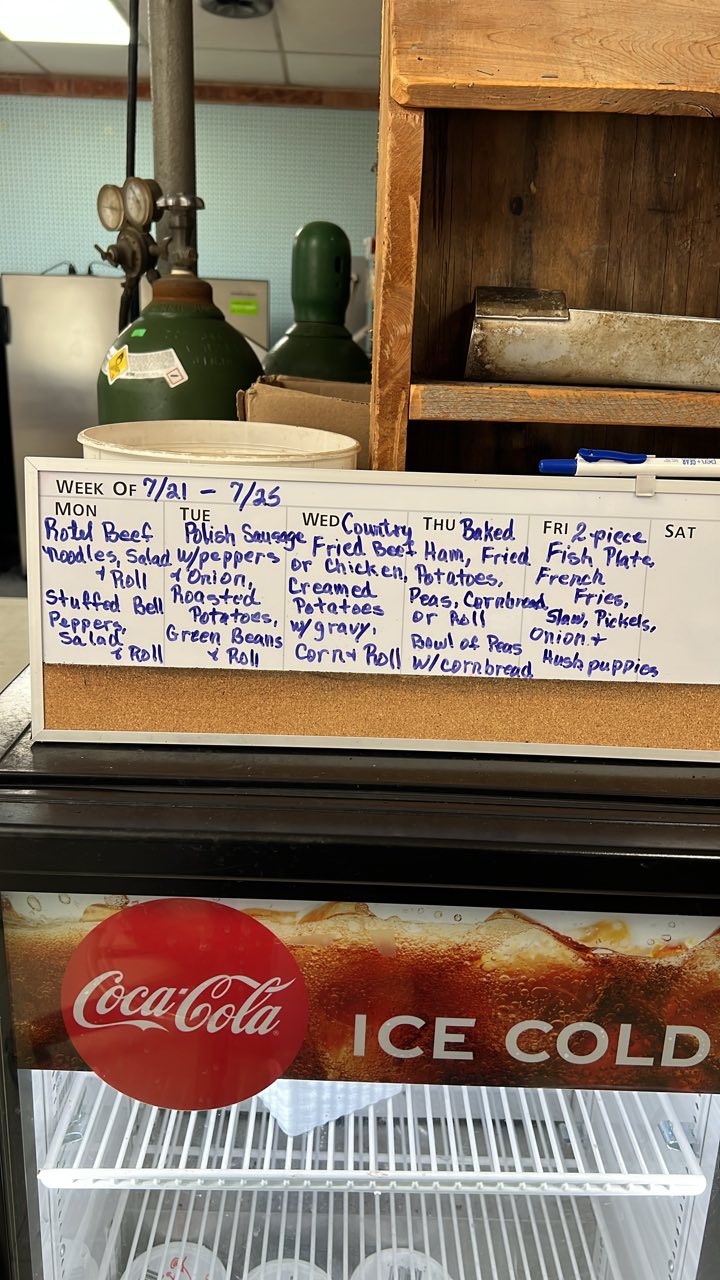 WEEK OF 7/21 - 7/25
MON
Rotel Beef
noodles, Salad
+ Roll
Stuffed Bell
Peppers,
Salad
+ Roll
TUE
Polish Sausage
w/peppers
+ Onion,
Roasted
Potatoes,
Green Beans
+ Roll
WED Country
Fried Beef
or Chicken,
Creamed
Potatoes
w/gravy,
Corn + Roll
THU Baked
Ham, Fried
Potatoes,
Peas, Cornbread
or Roll
Bowl of Peas
w/cornbread
FRI 2-piece
Fish Plate,
French
Fries,
Slaw, Pickels,
Onion +
Hushpuppies
SAT
Coca-Cola
ICE COLD